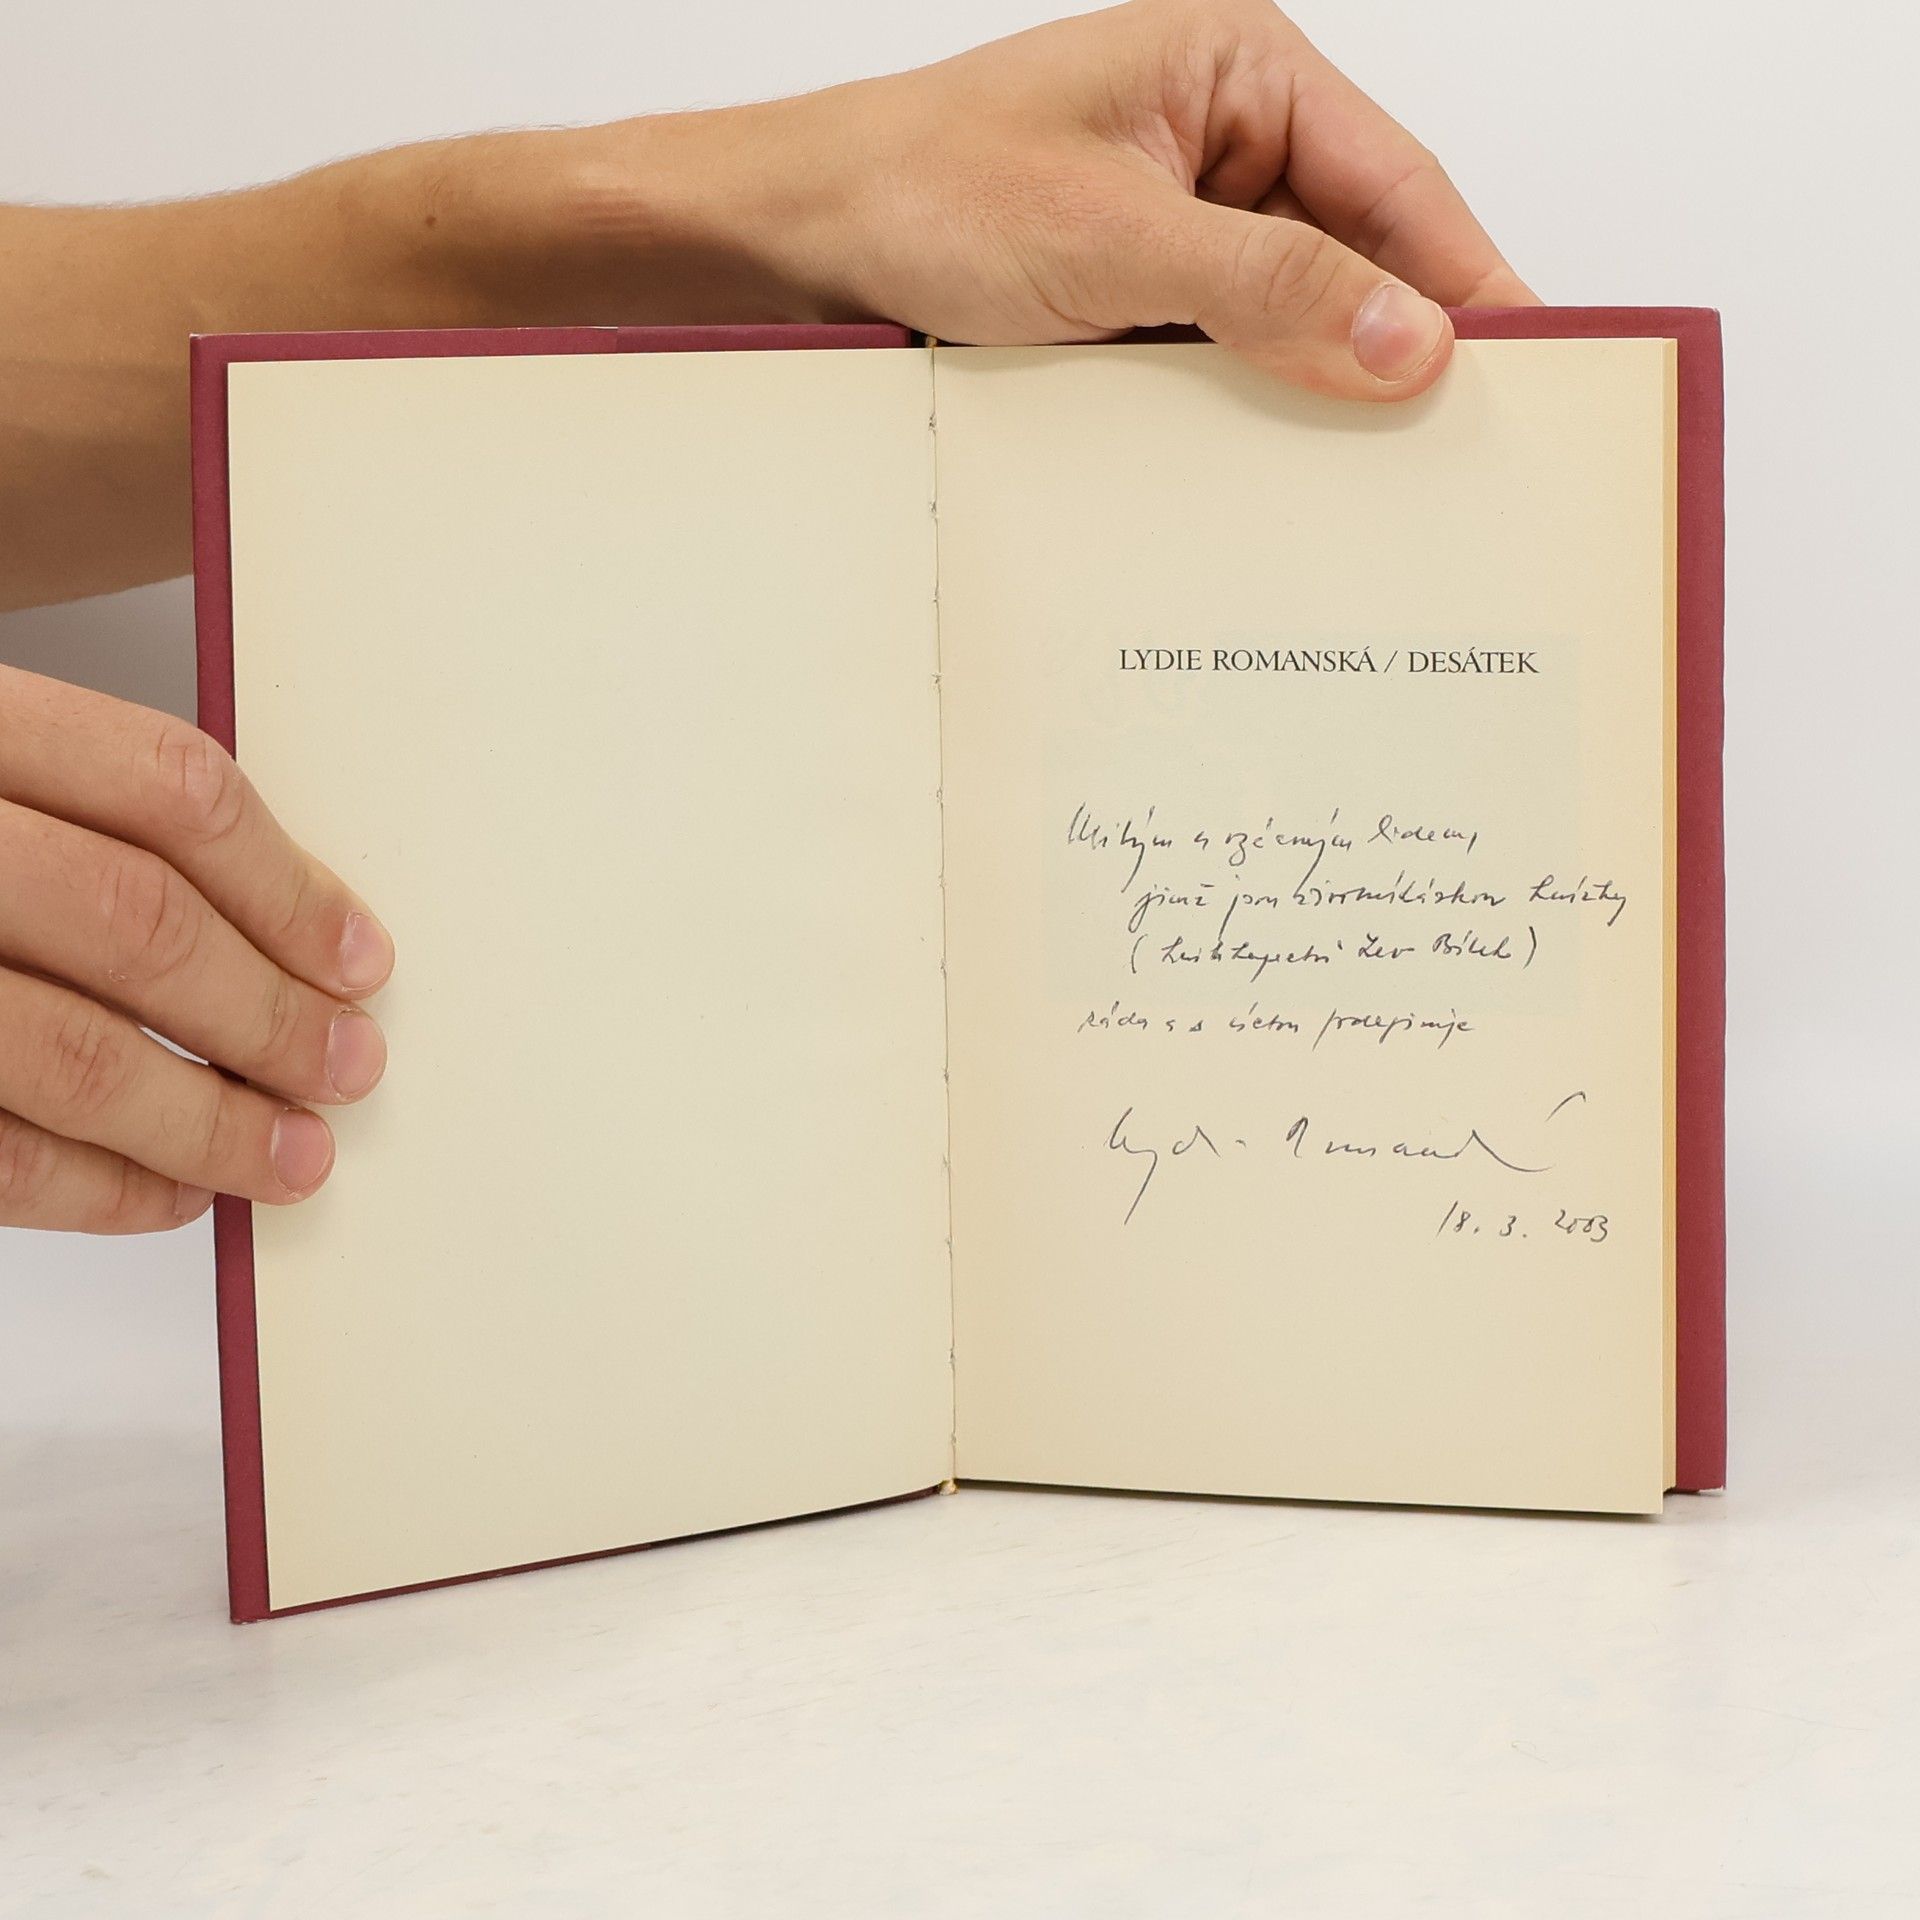 LYDIE ROMANSKÁ / DESÁTEK
Milým a vzácným lidem,
jimž jsou láskou knížky
(knihkupectví Lev Bílek)
ráda a s úctou podepisuje
Lydie Romanská
18. 3. 2003